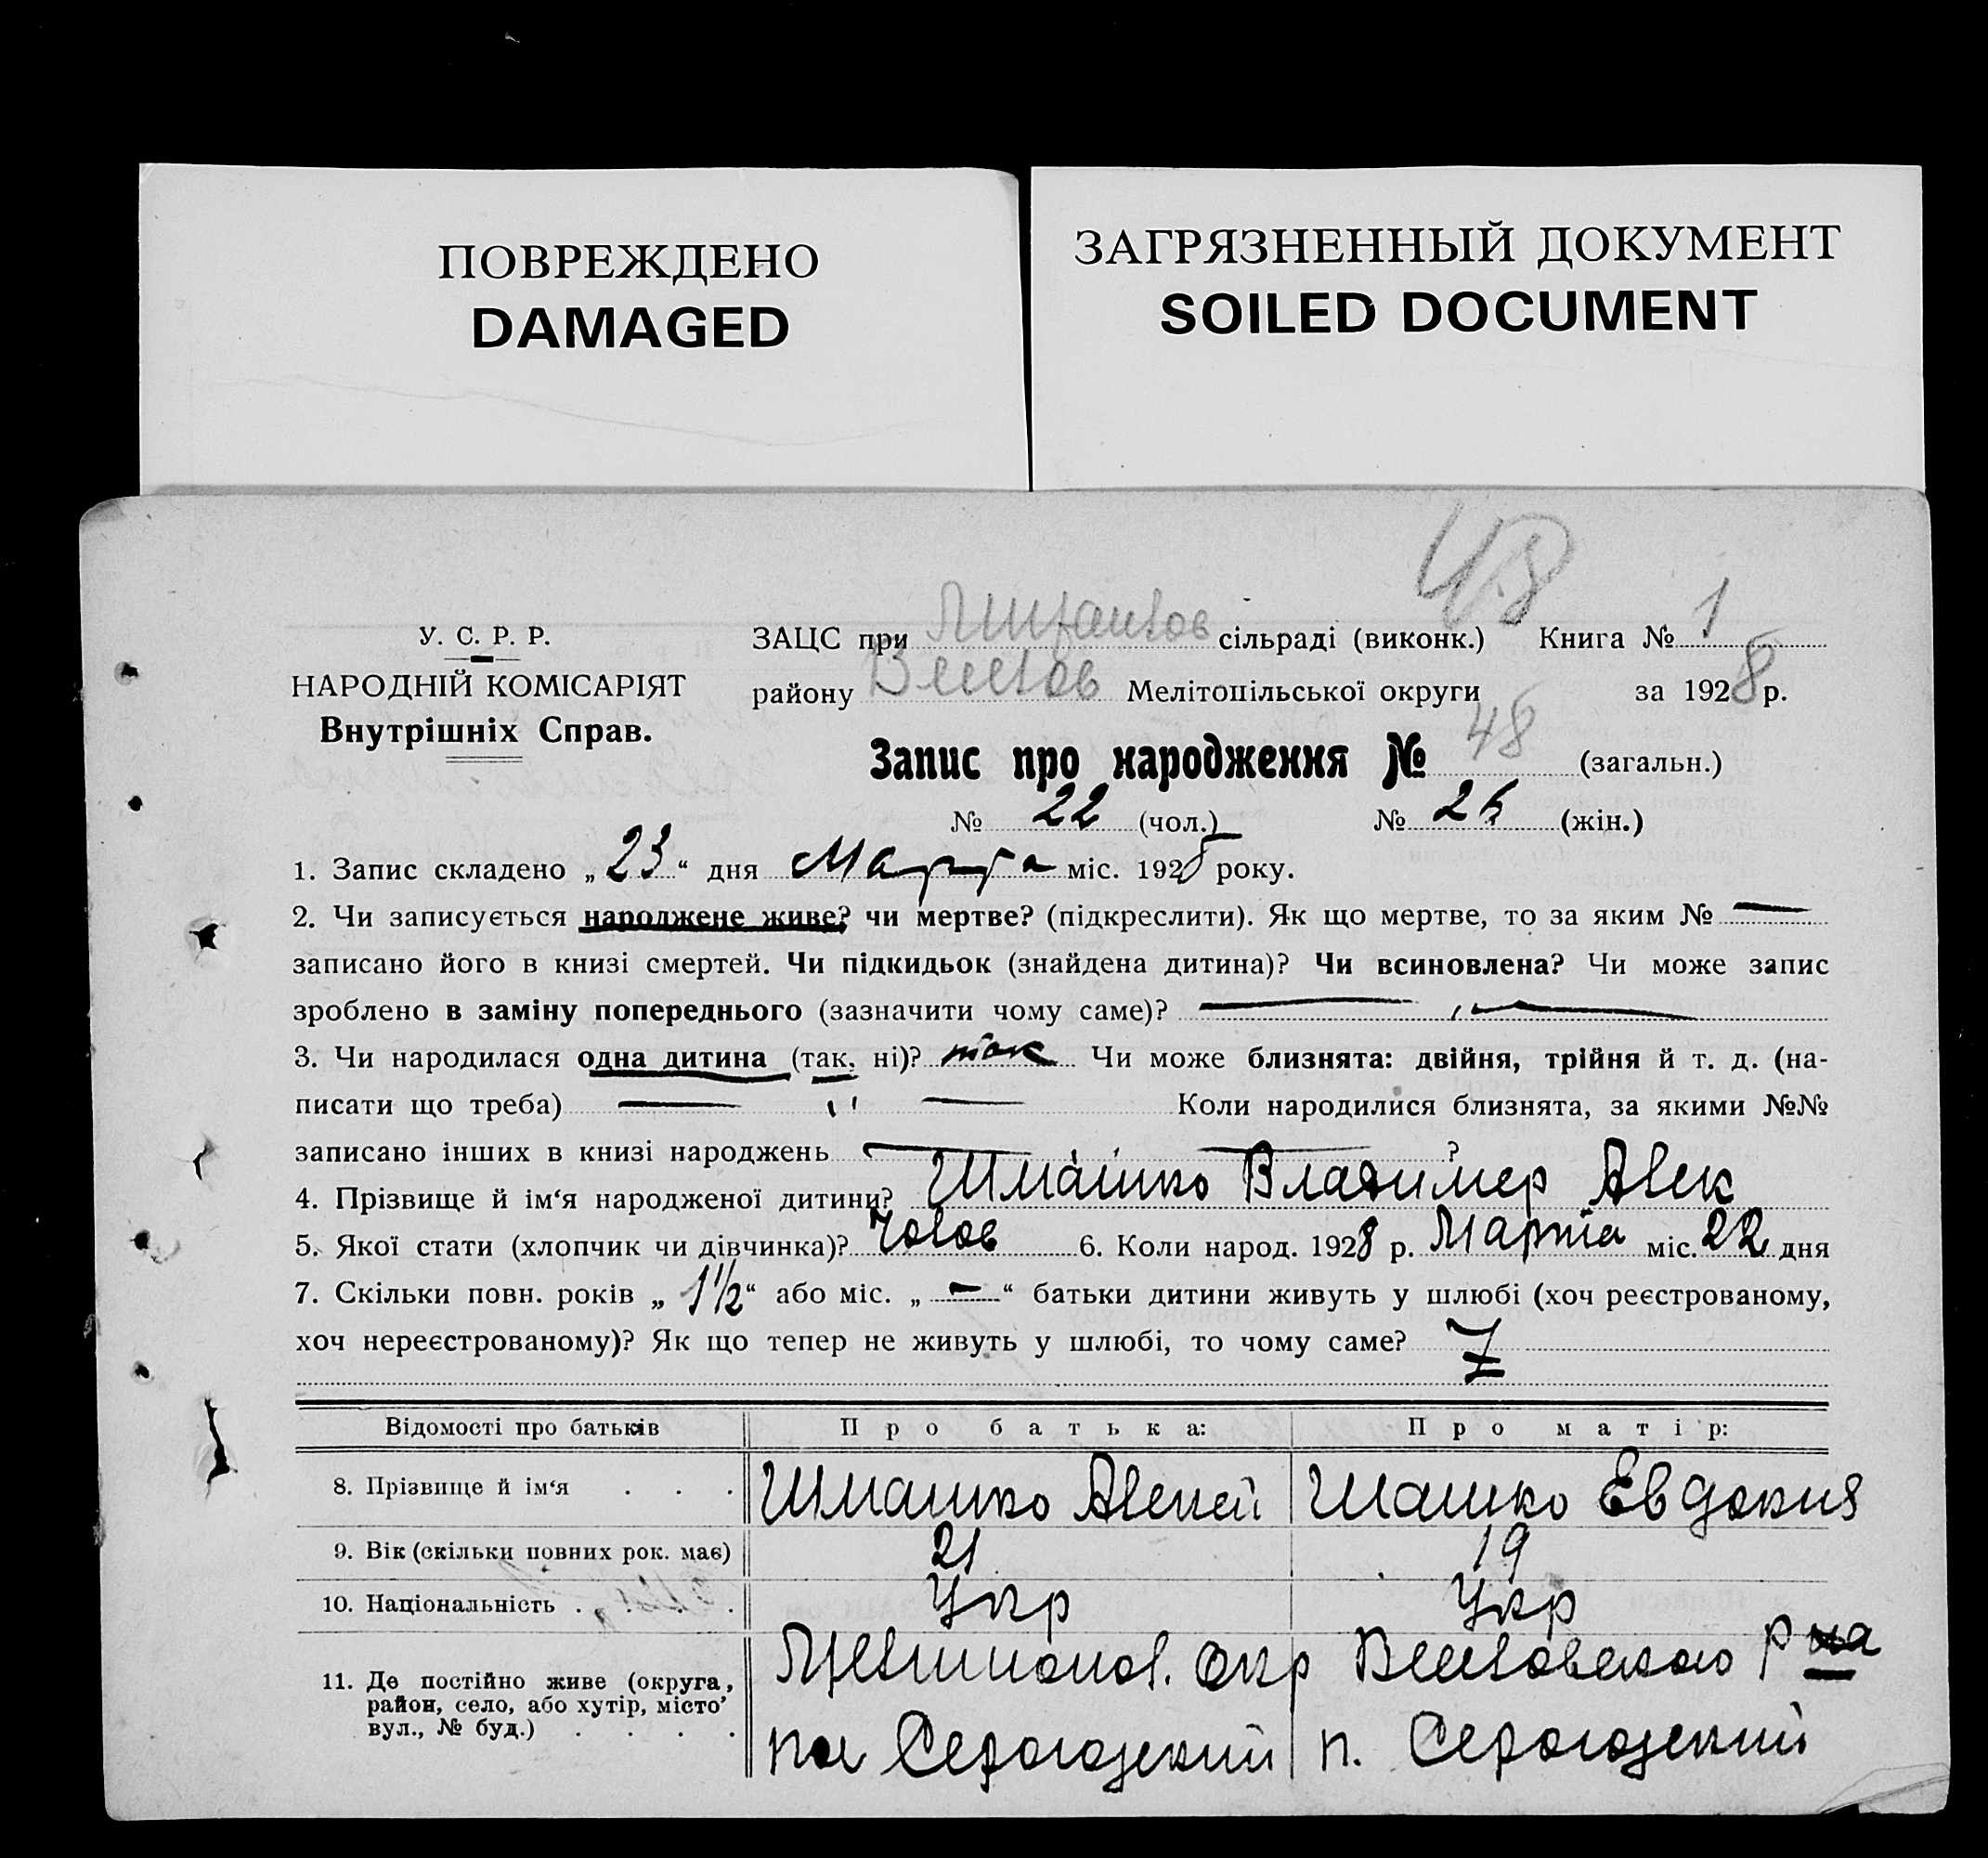 ПОВРЕЖДЕНО
DAMAGED
ЗАГРЯЗНЕННЫЙ ДОКУМЕНТ
SOILED DOCUMENT
48
У. С. Р. Р.
НАРОДНІЙ КОМІСАРІЯТ
Внутрішніх Справ.
ЗАЦС при сільраді (виконк.) Книга № 1
району Мелітопільської округи за 1928 р.
Запис про народження № 48 (загальн.)
№ 22 (чол.) № 26 (жін.)
1. Запис складено „23“ дня Марта міс. 1928 року.
2. Чи записується народжене живе? чи мертве? (підкреслити). Як що мертве, то за яким № —
записано його в книзі смертей. Чи підкидьок (знайдена дитина)? Чи всиновлена? Чи може запис
зроблено в заміну попереднього (зазначити чому саме)? — „ —
3. Чи народилася одна дитина (так, ні)? так Чи може близнята: двійня, трійня й т. д. (на-
писати що треба) — „ — Коли народилися близнята, за якими №№
записано інших в книзі народжень — — ?
4. Прізвище й ім‘я народженої дитини? Шмашко Владимер Алек
5. Якої стати (хлопчик чи дівчинка)? Чолов 6. Коли народ. 1928 р. Марта міс. 22 дня
7. Скільки повн. років „1½“ або міс. „—“ батьки дитини живуть у шлюбі (хоч реєстрованому,
хоч нереєстрованому)? Як що тепер не живуть у шлюбі, то чому саме?
Відомості про батьків Про батька: Про матір:
8. Прізвище й ім‘я . . . Шмашко Алекей Шашко Евдокия
9. Вік (скільки повних рок. має) 21 19
10. Національність . . . . Укр Укр
11. Де постійно живе (округа, район, село, або хутір, місто, вул., № буд.) . . . . окр р на
Серогозский п. Серогозский